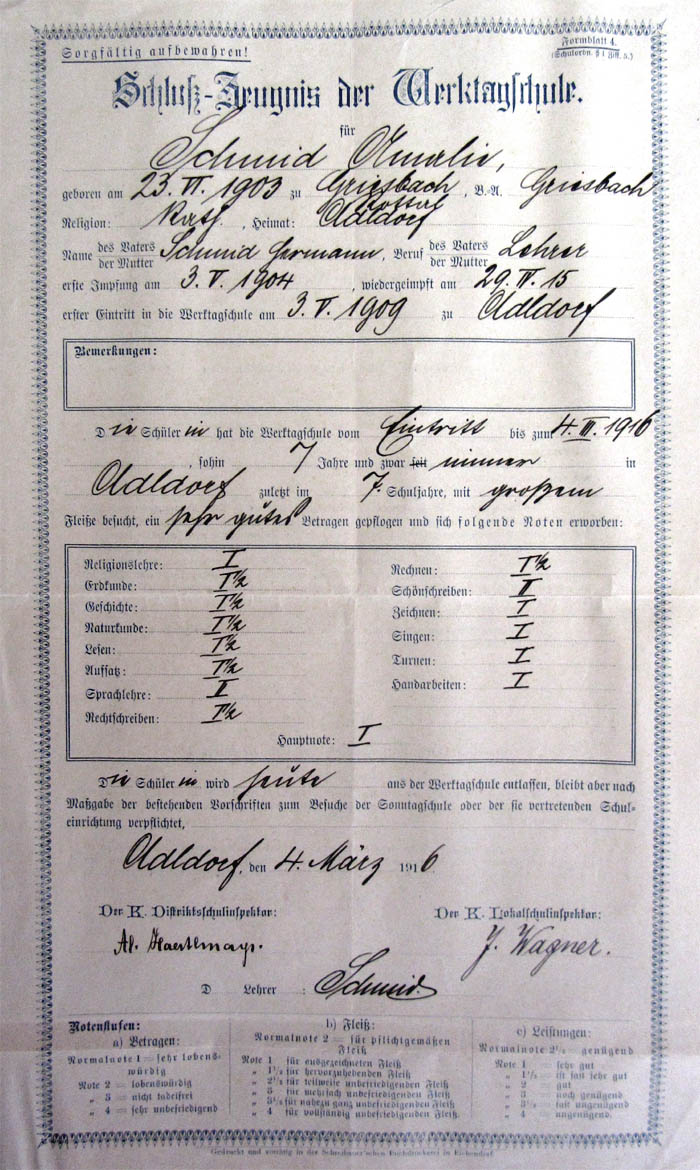 Sorgfältig aufbewahren!
Formblatt 4.
(Schulordn. § 1 Ziff. 5.)
Schluß-Zeugnis der Werktagschule.
für
Schmid Amalie,
geboren am 23. VI. 1903 zu Griesbach, B.A. Griesbach
Rottal
Religion: Kath., Heimat: Adldorf
Name des Vaters der Mutter Schmid Hermann, Beruf des Vaters der Mutter Lehrer
erste Impfung am 3. V. 1904, wiedergeimpft am 29. III. 15
erster Eintritt in die Werktagschule am 3. V. 1909 zu Adldorf
Bemerkungen:
Die Schülerin hat die Werktagschule vom Eintritt bis zum 4. III. 1916
, sohin 7 Jahre und zwar seit immer in
Adldorf zuletzt im 7. Schuljahre, mit großem
Fleiße besucht, ein sehr gutes Betragen gepflogen und sich folgende Noten erworben:
Religionslehre: I
Erdkunde: I ½
Geschichte: I ½
Naturkunde: I ½
Lesen: I ½
Aufsatz: I ½
Sprachlehre: II
Rechtschreiben: I ½
Rechnen: I ½
Schönschreiben: II
Zeichnen: I
Singen: I
Turnen: I
Handarbeiten: I
Hauptnote: I
Die Schülerin wird heute aus der Werktagschule entlassen, bleibt aber nach
Maßgabe der bestehenden Vorschriften zum Besuche der Sonntagschule oder der sie vertretenden Schul-
einrichtung verpflichtet.
Adldorf, den 4. März 1916.
Der K. Distriktsschulinspektor:
Der K. Lokalschulinspektor:
J. Wagner.
D Lehrer : Schmid.
Notenstufen:
a) Betragen:
Normalnote 1 = sehr lobens-
würdig
Note 2 = lobenswürdig
„ 3 = nicht tadelfrei
„ 4 = sehr unbefriedigend
b) Fleiß:
Normalnote 2 = für pflichtgemäßen
Fleiß
Note 1 für ausgezeichneten Fleiß
„ 1½ für hervorzuhebenden Fleiß
„ 2½ für teilweise unbefriedigenden Fleiß
„ 3 für mehrfach unbefriedigenden Fleiß
„ 3½ für nahezu ganz unbefriedigenden Fleiß
„ 4 für vollständig unbefriedigenden Fleiß.
c) Leistungen:
Normalnote 2½ = genügend
Note 1 = sehr gut
„ 1½ = ist fast sehr gut
„ 2 = gut
„ 3 = noch genügend
„ 3½ = fast ungenügend
„ 4 = ungenügend.
Gedruckt und vorrätig in der Buchdruckerei in Eichendorf